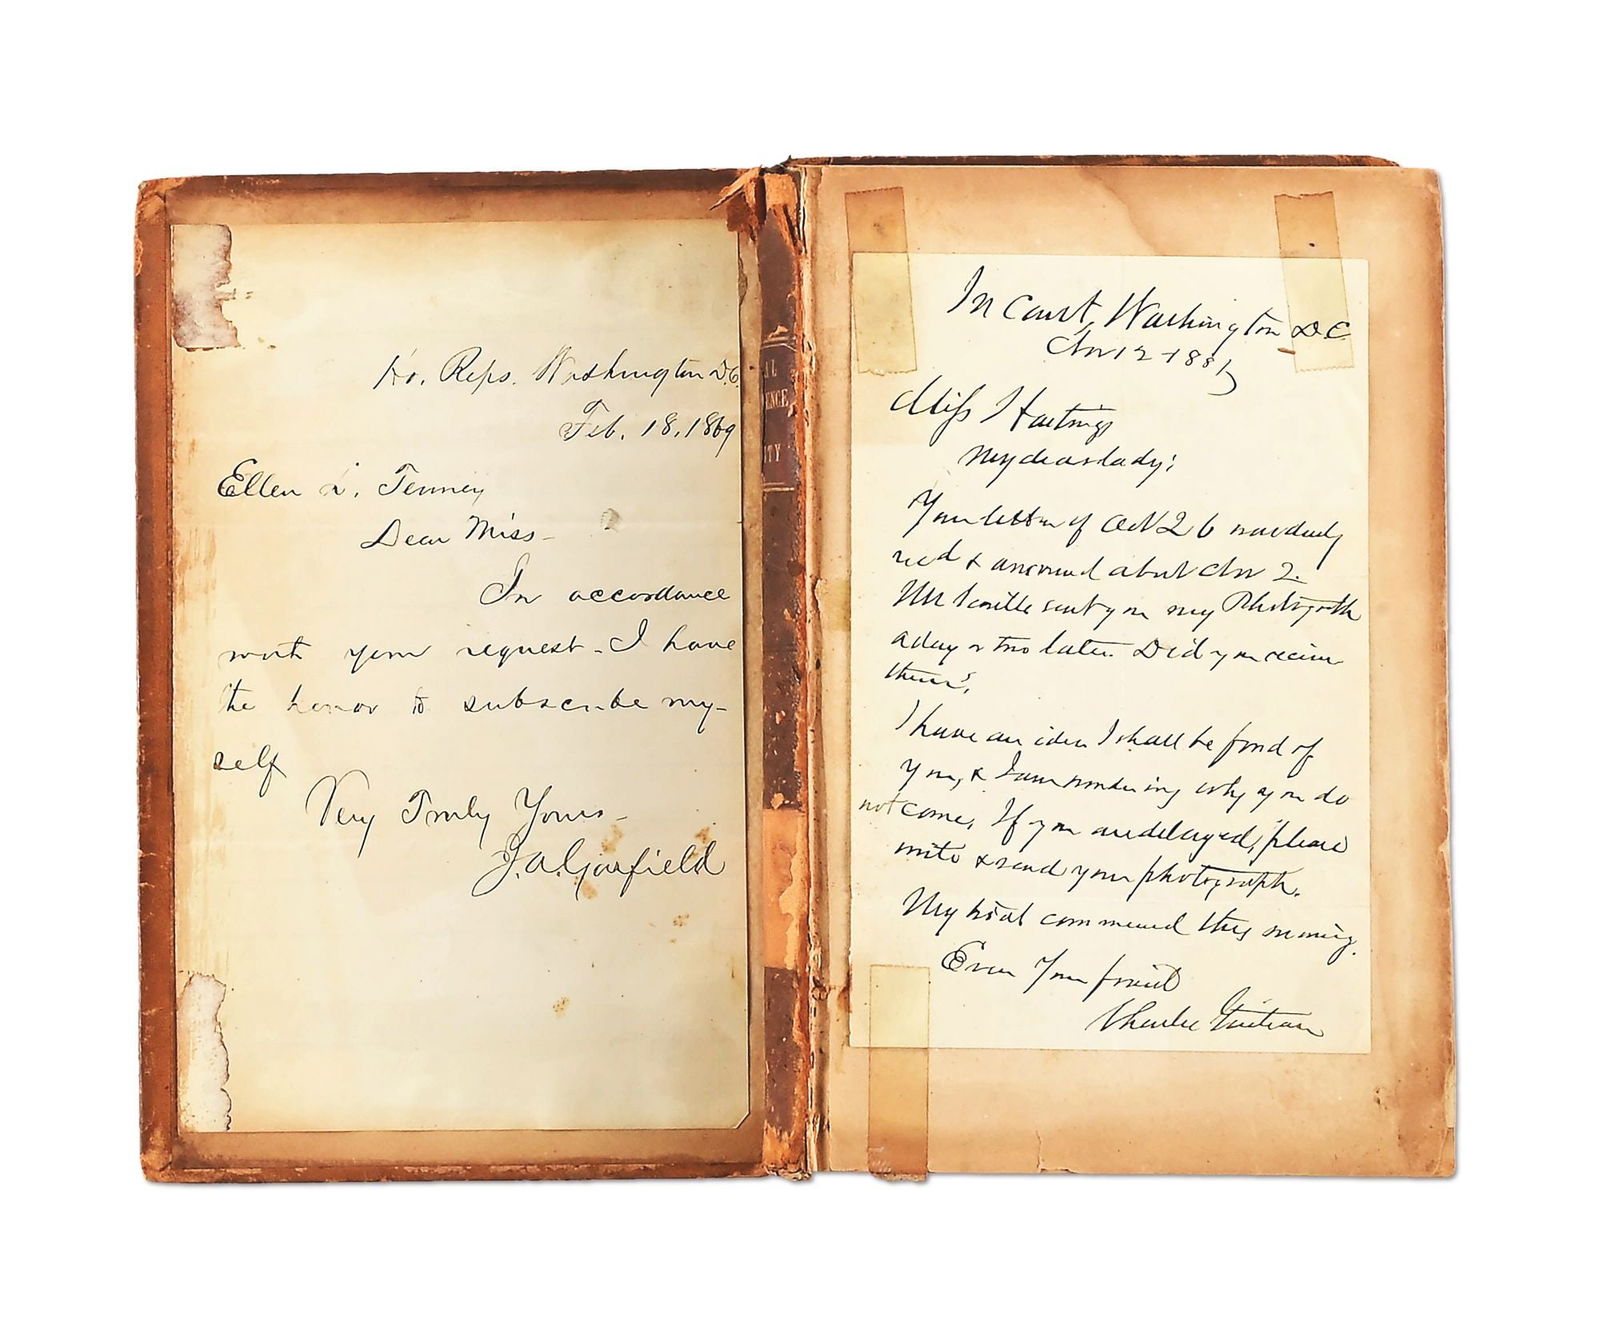 Ho. Reps. Washington D.C.
Feb. 18, 1869
Ellen L. Tenney
Dear Miss-
In accordance
with your request - I have
the honor to subscribe my-
self
Very Truly Yours-
J. A. Garfield
ENCE
ITY
In Court, Washington D.C.
Nov 12 1881
Miss Hastings
My dear lady;
Your letter of Oct 26 was duly
recd & answered about Nov 2.
Mr Scoville sent you my Photograph
a day or two later. Did you receive
them?
I have an idea I shall be fond of
you, & I am wondering why you do
not come. If you are delayed, please
write & send your photograph.
My trial commenced this morning.
Ever Your friend
Charles Guiteau